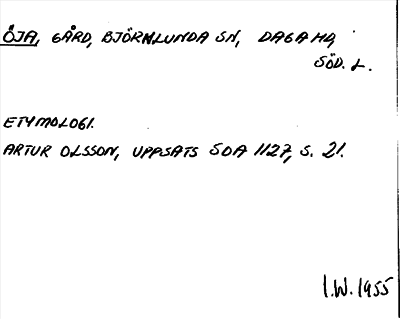 ÖJA, GÅRD, BJÖRNLUNDA SN, DAGA HD,
SÖD. L.
ETYMOLOGI.
ARTUR OLSSON, UPPSATS SOA 1127, S. 21.
I.W. 1955